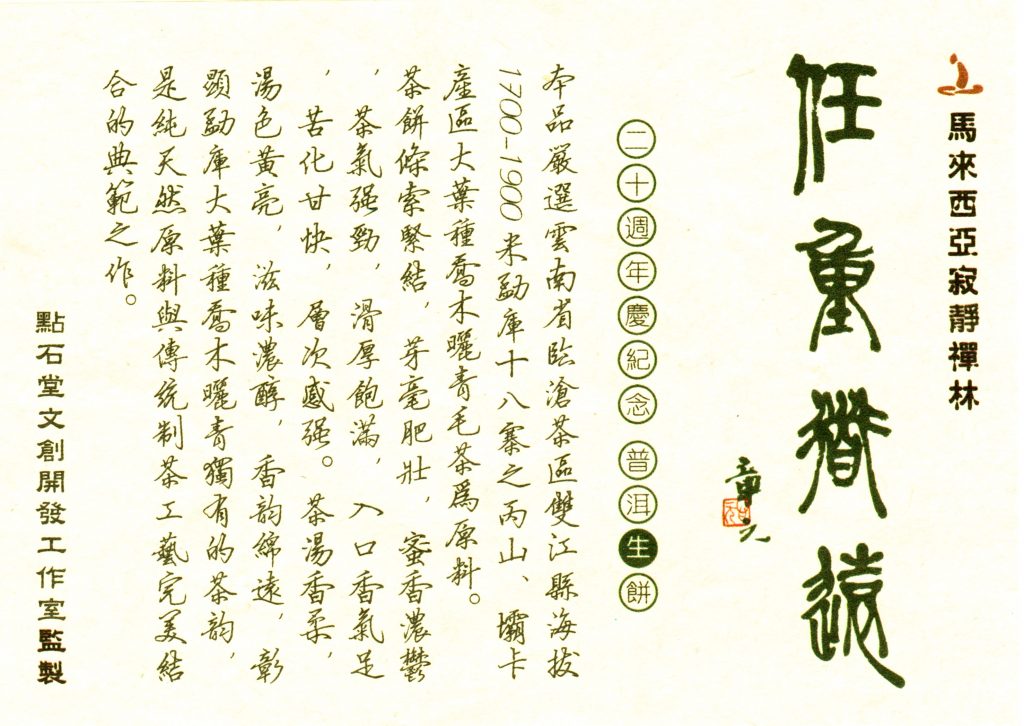 馬來西亞寂靜禪林
任重道遠
二十週年慶紀念 普洱生餅
本品嚴選雲南省臨滄茶區雙江縣海拔
1700-1900米勐庫十八寨之丙山、壩卡
產區大葉種喬木曬青毛茶爲原料。
茶餅條索緊結，芽毫肥壯，蜜香濃鬱
，茶氣强勁，滑厚飽滿，入口香氣足
，苦化甘快，層次感强。茶湯香柔，
湯色黃亮，滋味濃醇，香韵綿遠，彰
顯勐庫大葉種喬木曬青獨有的茶韵，
是純天然原料與傳統制茶工藝完美結
合的典範之作。
點石堂文創開發工作室監製